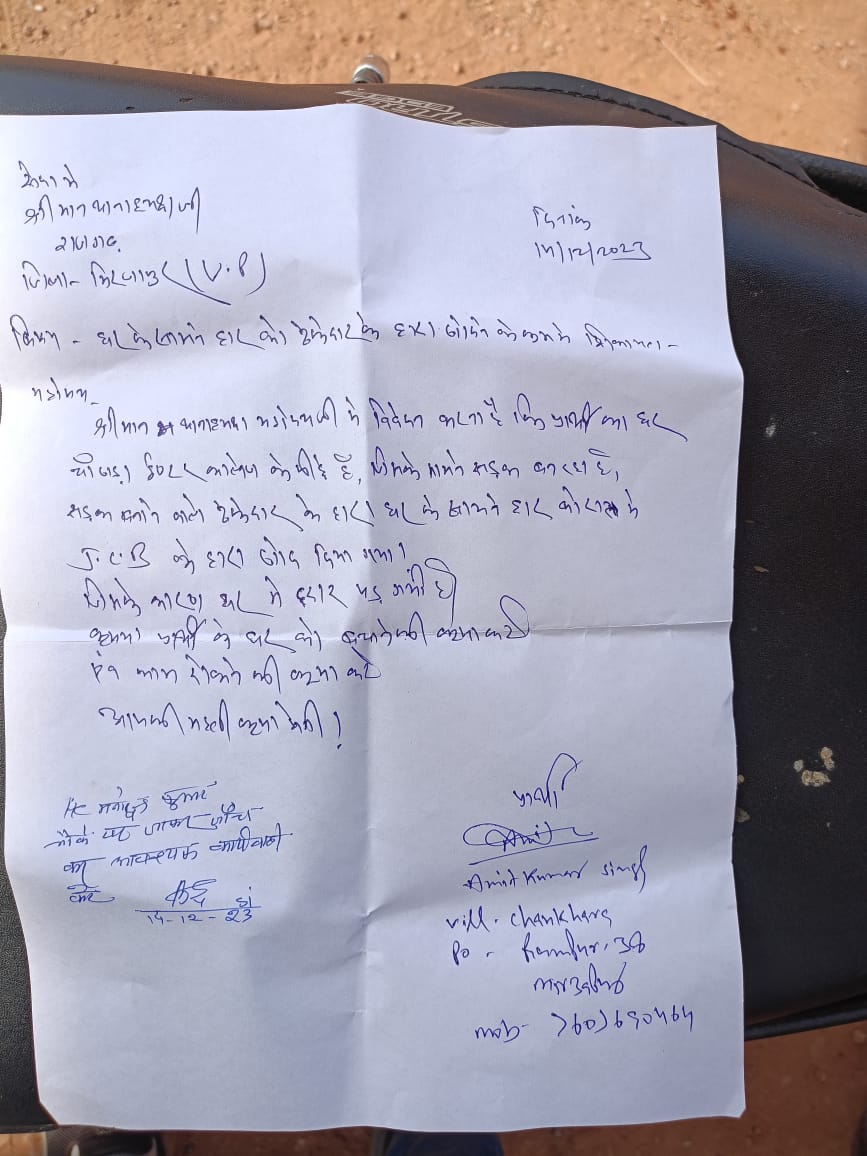 सेवा में
श्रीमान थानाध्यक्ष जी
राजगढ़
जिला - मिरजापुर (U.P)
दिनांक
14/12/2023
विषय - घर के सामने को ठेकेदार के द्वारा खोदने के में शिकायत -
महोदय -
श्रीमान थानाध्यक्ष महोदय जी से निवेदन करना है कि प्रार्थी का घर
इण्टर कालेज के है, जिसके सामने सड़क बन रहा है,
सड़क बनाने वाले ठेकेदार के द्वारा घर के सामने
J.C.B के द्वारा खोद दिया गया।
जिसके कारण घर में दरार पड़ गयी है
कृपया प्रार्थी के घर को बचाने की कृपा करें
एवं काम रोकने की कृपा करें
आपकी महती कृपा होगी!
प्रार्थी
Amit
Amit Kumar Singh
vill. Chankhara
Po - Rampur. 38
mob-
HC कुमार
मौके पर जाकर जाँच
कर आवश्यक कार्यवाही
करें
SI
14-12-23